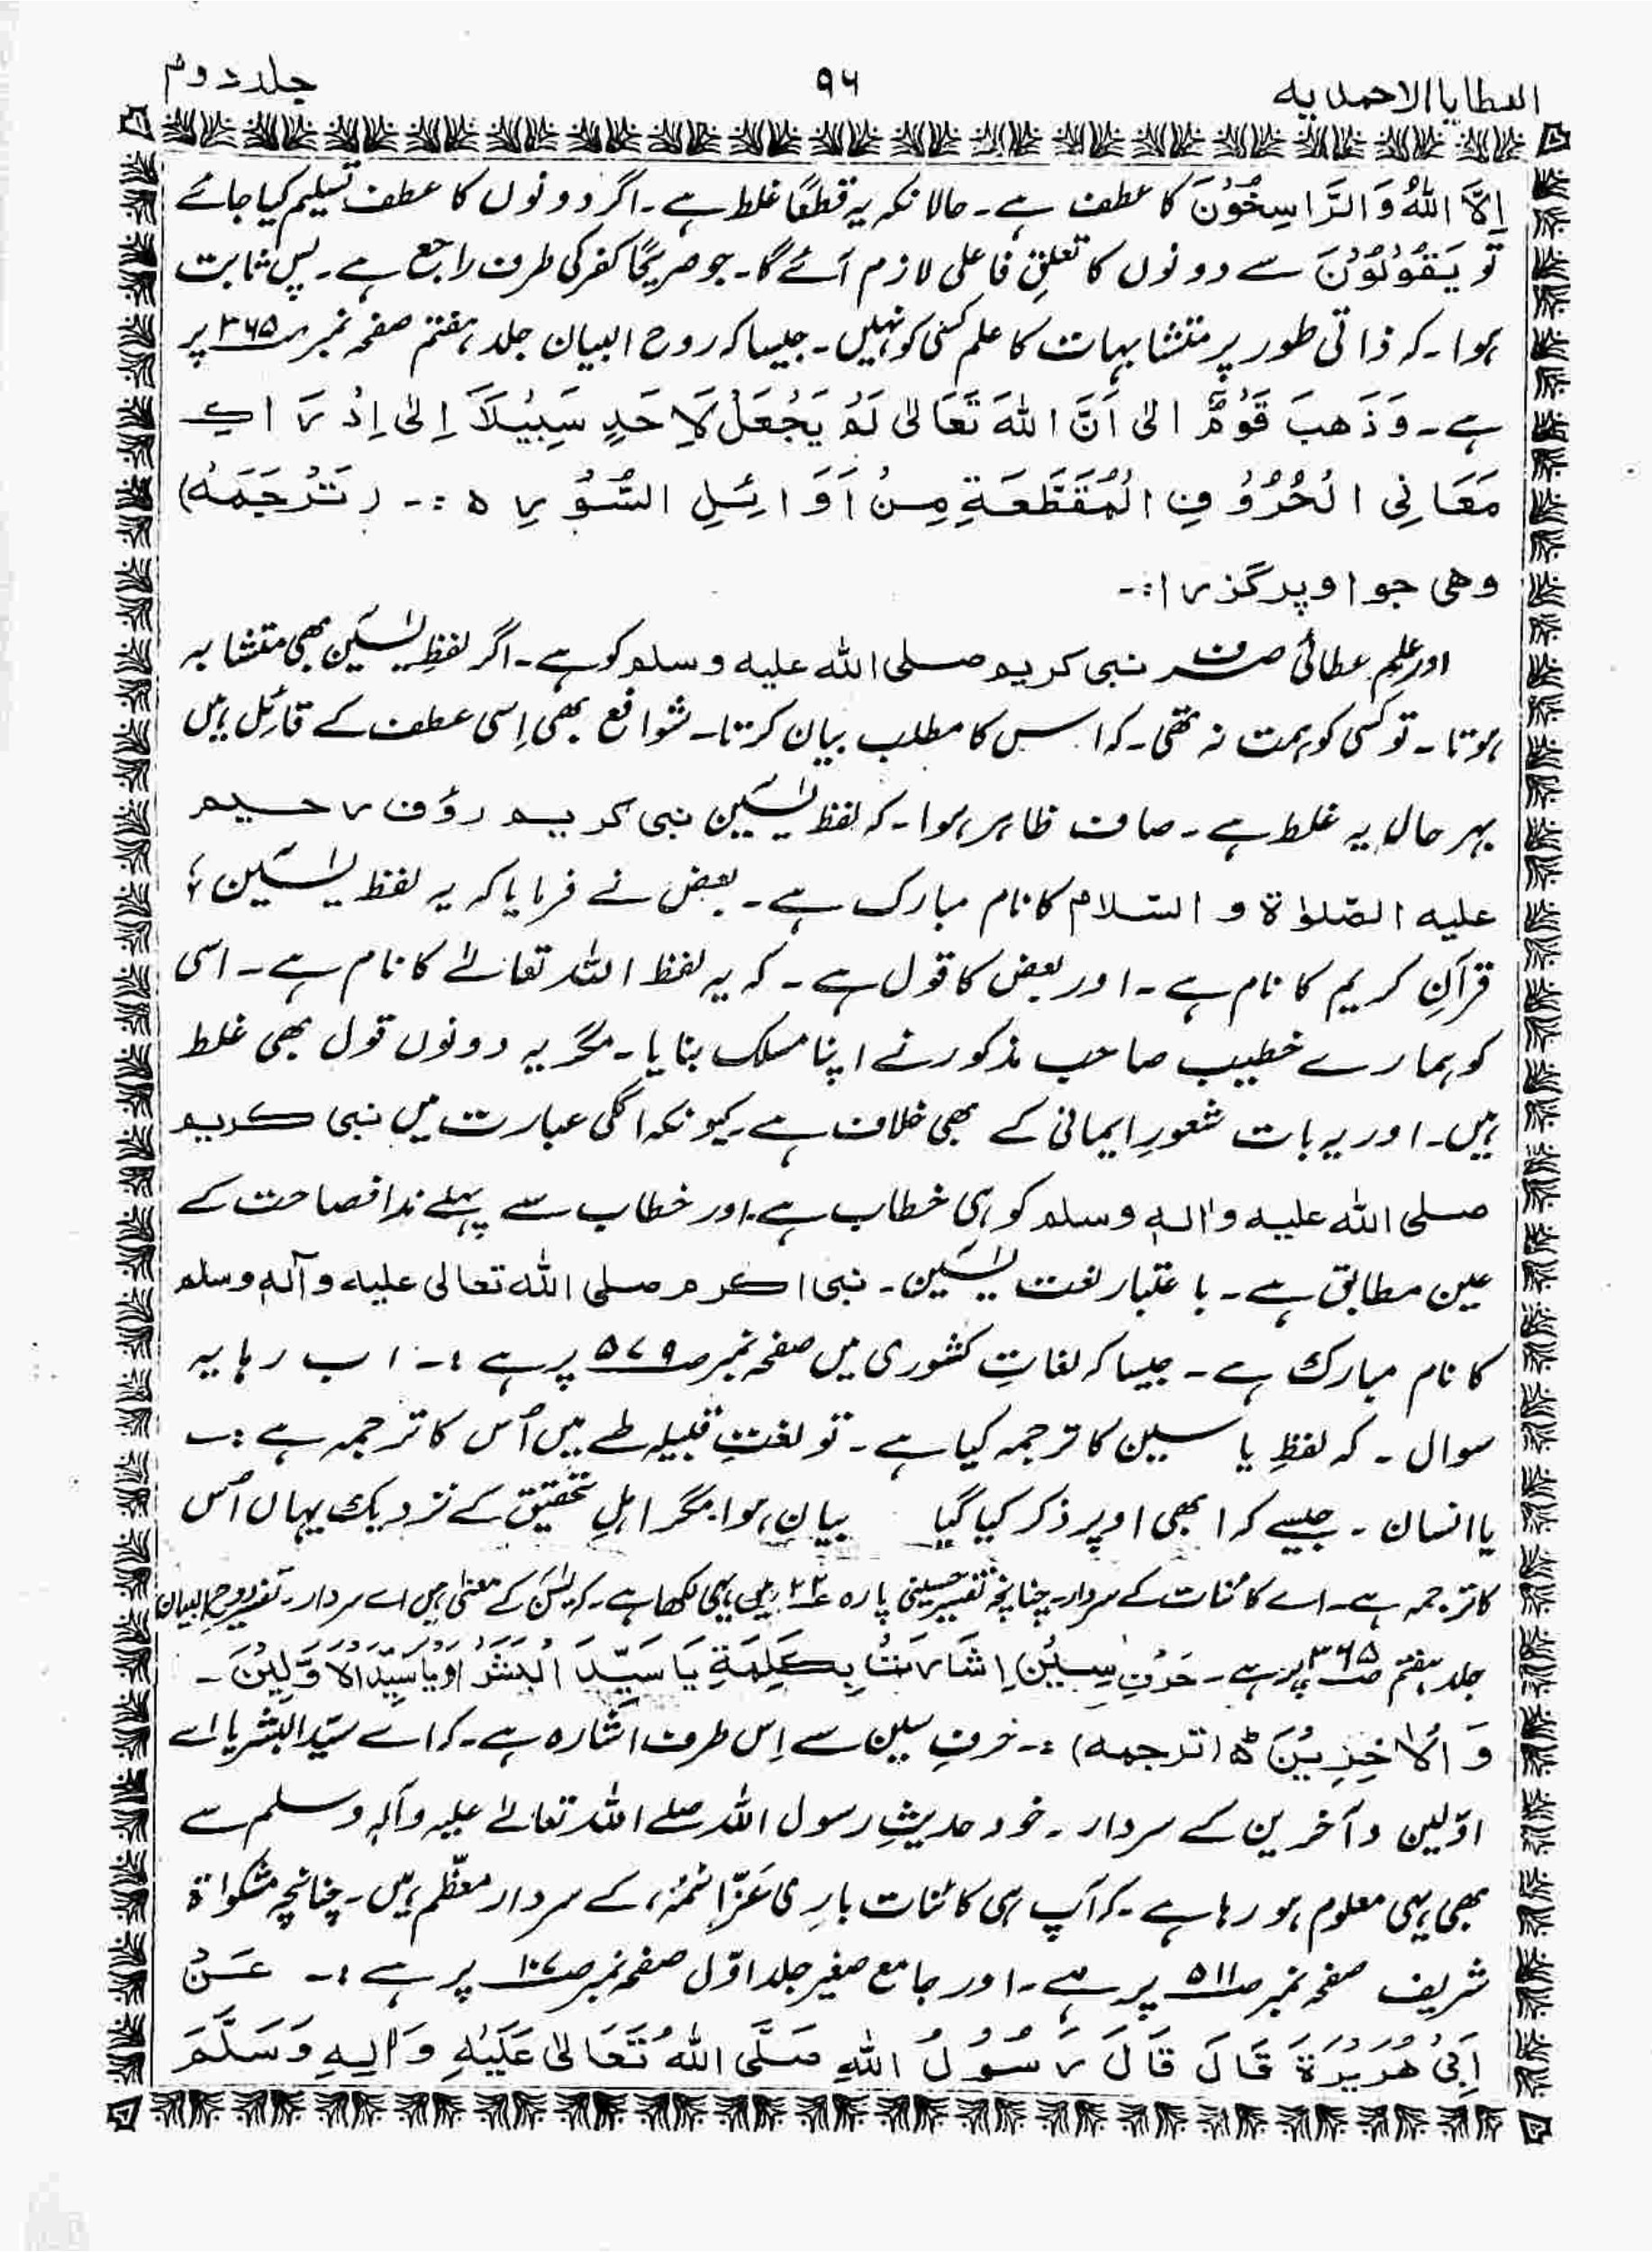 العطایا الاحمدیہ
۹۶
جلد دوم
اِلَّا اللّٰهُ وَالرَّاسِخُوْنَ کا عطف ہے۔ حالانکہ یہ قطعًا غلط ہے۔ اگر دونوں کا عطف تسلیم کیا جائے
تو یَقُوْلُوْنَ سے دونوں کا تعلقِ فاعلی لازم آئے گا۔ جو صریحًا کفر کی طرف راجع ہے۔ پس ثابت
ہوا۔ کہ ذاتی طور پر متشابہات کا علم کسی کو نہیں۔ جیسا کہ روح البیان جلد ہفتم صفحہ نمبر ۳۶۵ پر
ہے۔ وَذَهبَ قَوْمٌ الی اَنَّ اللّٰهَ تَعَالٰی لَمْ یَجْعَلْ لَاِحَدٍ سَبِیْلَاً اِلیٰ اِدْرَاكِ
مَعَانِی الْحُرُوْفِ الْمُقَطَّعَةِ مِنْ اَوَائِلِ السُّوَرِ ہ :۔ (تَرْجَمَہ)
وهی جو اوپر گذرا :۔
اور علم عطائی صرف نبی کریم صلی اللہ علیہ وسلم کو ہے۔ اگر لفظِ یٰسٓین بھی متشابہ
ہوتا۔ تو کسی کو ہمت نہ تھی۔ کہ اس کا مطلب بیان کرتا۔ شوافع بھی اِسی عطف کے قائِل ہیں
بہر حال یہ غلط ہے۔ صاف ظاہر ہوا۔ کہ لفظ یٰسٓین نبی کریم رؤف رحیم
علیہ الصّلوٰۃ و السّلام کا نام مبارک ہے۔ بعض نے فرمایا کہ یہ لفظ یٰسٓین،
قرآنِ کریم کا نام ہے۔ اور بعض کا قول ہے۔ کہ یہ لفظ اللہ تعالےٰ کا نام ہے۔ اسی
کو ہمارے خطیب صاحب مذکور نے اپنا مسلک بنایا۔ مگر یہ دونوں قول بھی غلط
ہیں۔ اور یہ بات شعورِ ایمانی کے بھی خلاف ہے۔ کیونکہ اگلی عبارت میں نبی کریم
صلی اللہ علیہ واٰلہٖ وسلم کو ہی خطاب ہے۔ اور خطاب سے پہلے ندا فصاحت کے
عین مطابق ہے۔ باعتبار لغت یٰسٓین۔ نبی اکرم صلی اللہ تعالی علیہ وآلہٖ وسلم
کا نام مبارک ہے۔ جیسا کہ لغاتِ کشوری میں صفحہ نمبر ۵۷۹ پر ہے :۔ اب رہا یہ
سوال۔ کہ لفظِ یاسین کا ترجمہ کیا ہے۔ تو لغتِ قبیلہ طے میں اُس کا ترجمہ ہے :۔
یا انسان۔ جیسے کہ ابھی اوپر ذکر کیا گیا بیان ہوا۔ مگر اہلِ تحقیق کے نزدیک یہاں اُس
کا ترجمہ ہے۔ اے کائنات کے سردار۔ چنانچہ تفسیر حسینی پارہ ۲۲ میں یہی لکھا ہے۔ کہ یٰسٓ کے معنٰی ہیں اے سردار۔ تفسیر روح البیان
جلد ہفتم ص ۳۶۵ پر ہے۔ حَرْفِ سِیْن اِشَارَتْ بِکَلِمَةِ یَا سَیِّدَ الْبَشَرَ اَوْ یَا سَیِّدَ الْاَوَّلِیْنَ۔
وَ الْاٰخِرِیْنَ ط ہ (ترجمہ) :۔ حرفِ سین سے اِس طرف اشارہ ہے۔ کہ اے سیّد البشر یا اے
اوّلین و آخرین کے سردار۔ خود حدیثِ رسول اللہ صلے اللہ تعالےٰ علیہ وآلہٖ وسلم سے
بھی یہی معلوم ہو رہا ہے۔ کہ آپ ہی کائنات بارِی عَزّ اسْمُہٗ، کے سردار معظّم ہیں۔ چنانچہ مشکواۃ
شریف صفحہ نمبر ۵۱۱ پر ہے۔ اور جامع صغیر جلد اوّل صفحہ نمبر ۱۰۷ پر ہے :۔ عَنْ
اَبِیْ هُرَیْرَةَ قَالَ قَالَ رَسُوْلُ اللّٰهِ صَلَّی اللّٰهُ تَعَالٰی عَلَیْهِ وَاٰلِهٖ وَسَلَّمَ